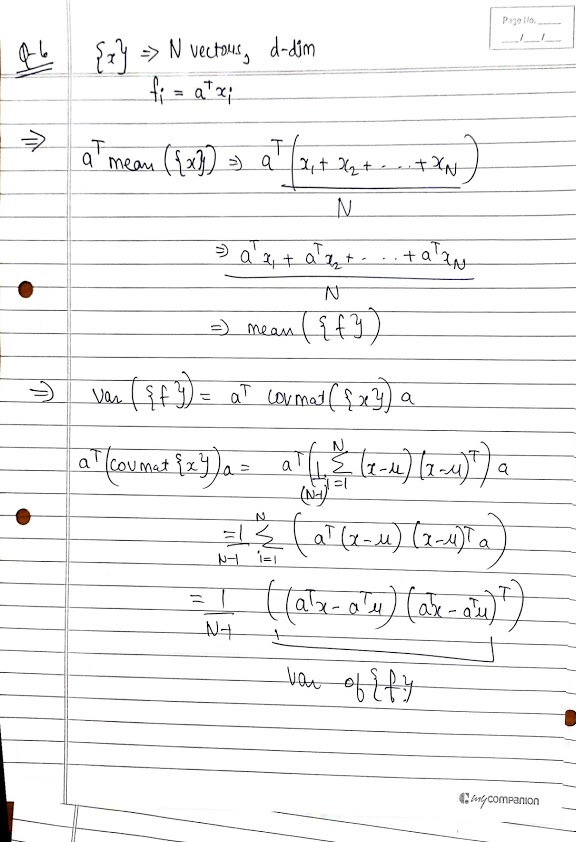 Page No.
__/__/__
Q-6 {x} ⇒ N vectors, d-dim
fi = aᵀxi
⇒ aᵀ mean ({x}) ⇒ aᵀ (x₁ + x₂ + ... + xN)
N
⇒ aᵀx₁ + aᵀx₂ + ... + aᵀxN
N
⇒ mean ({f})
⇒ var ({f}) = aᵀ covmat ({x}) a
aᵀ(covmat {x}) a = aᵀ (1/(N-1) Σ_{i=1}^{N} (x-μ) (x-μ)ᵀ) a
= 1/(N-1) Σ_{i=1}^{N} (aᵀ (x-μ) (x-μ)ᵀ a)
= 1/(N-1) ((aᵀx - aᵀμ) (aᵀx - aᵀμ)ᵀ)
var of {f}
mycompanion